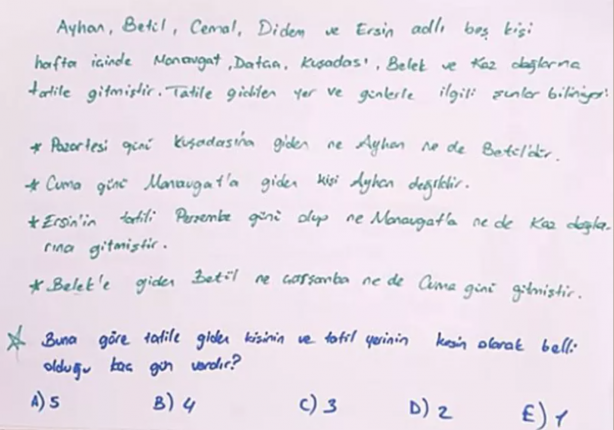 Ayhan, Betül, Cemal, Didem ve Ersin adlı beş kişi
hafta içinde Manavgat, Datça, Kuşadası, Belek ve Kaz dağlarına
tatile gitmiştir. Tatile gidilen yer ve günlerle ilgili şunlar biliniyor:
* Pazartesi günü Kuşadasına giden ne Ayhan ne de Betül'dür.
* Cuma günü Manavgat'a giden kişi Ayhan değildir.
* Ersin'in tatili Perşembe günü olup ne Manavgat'a ne de Kaz dağla-
rına gitmiştir.
* Belek'e giden Betül ne Çarşamba ne de Cuma günü gitmiştir.
☆ Buna göre tatile giden kişinin ve tatil yerinin kesin olarak belli
olduğu kaç gün vardır?
A) 5 B) 4 C) 3 D) 2 E) 1